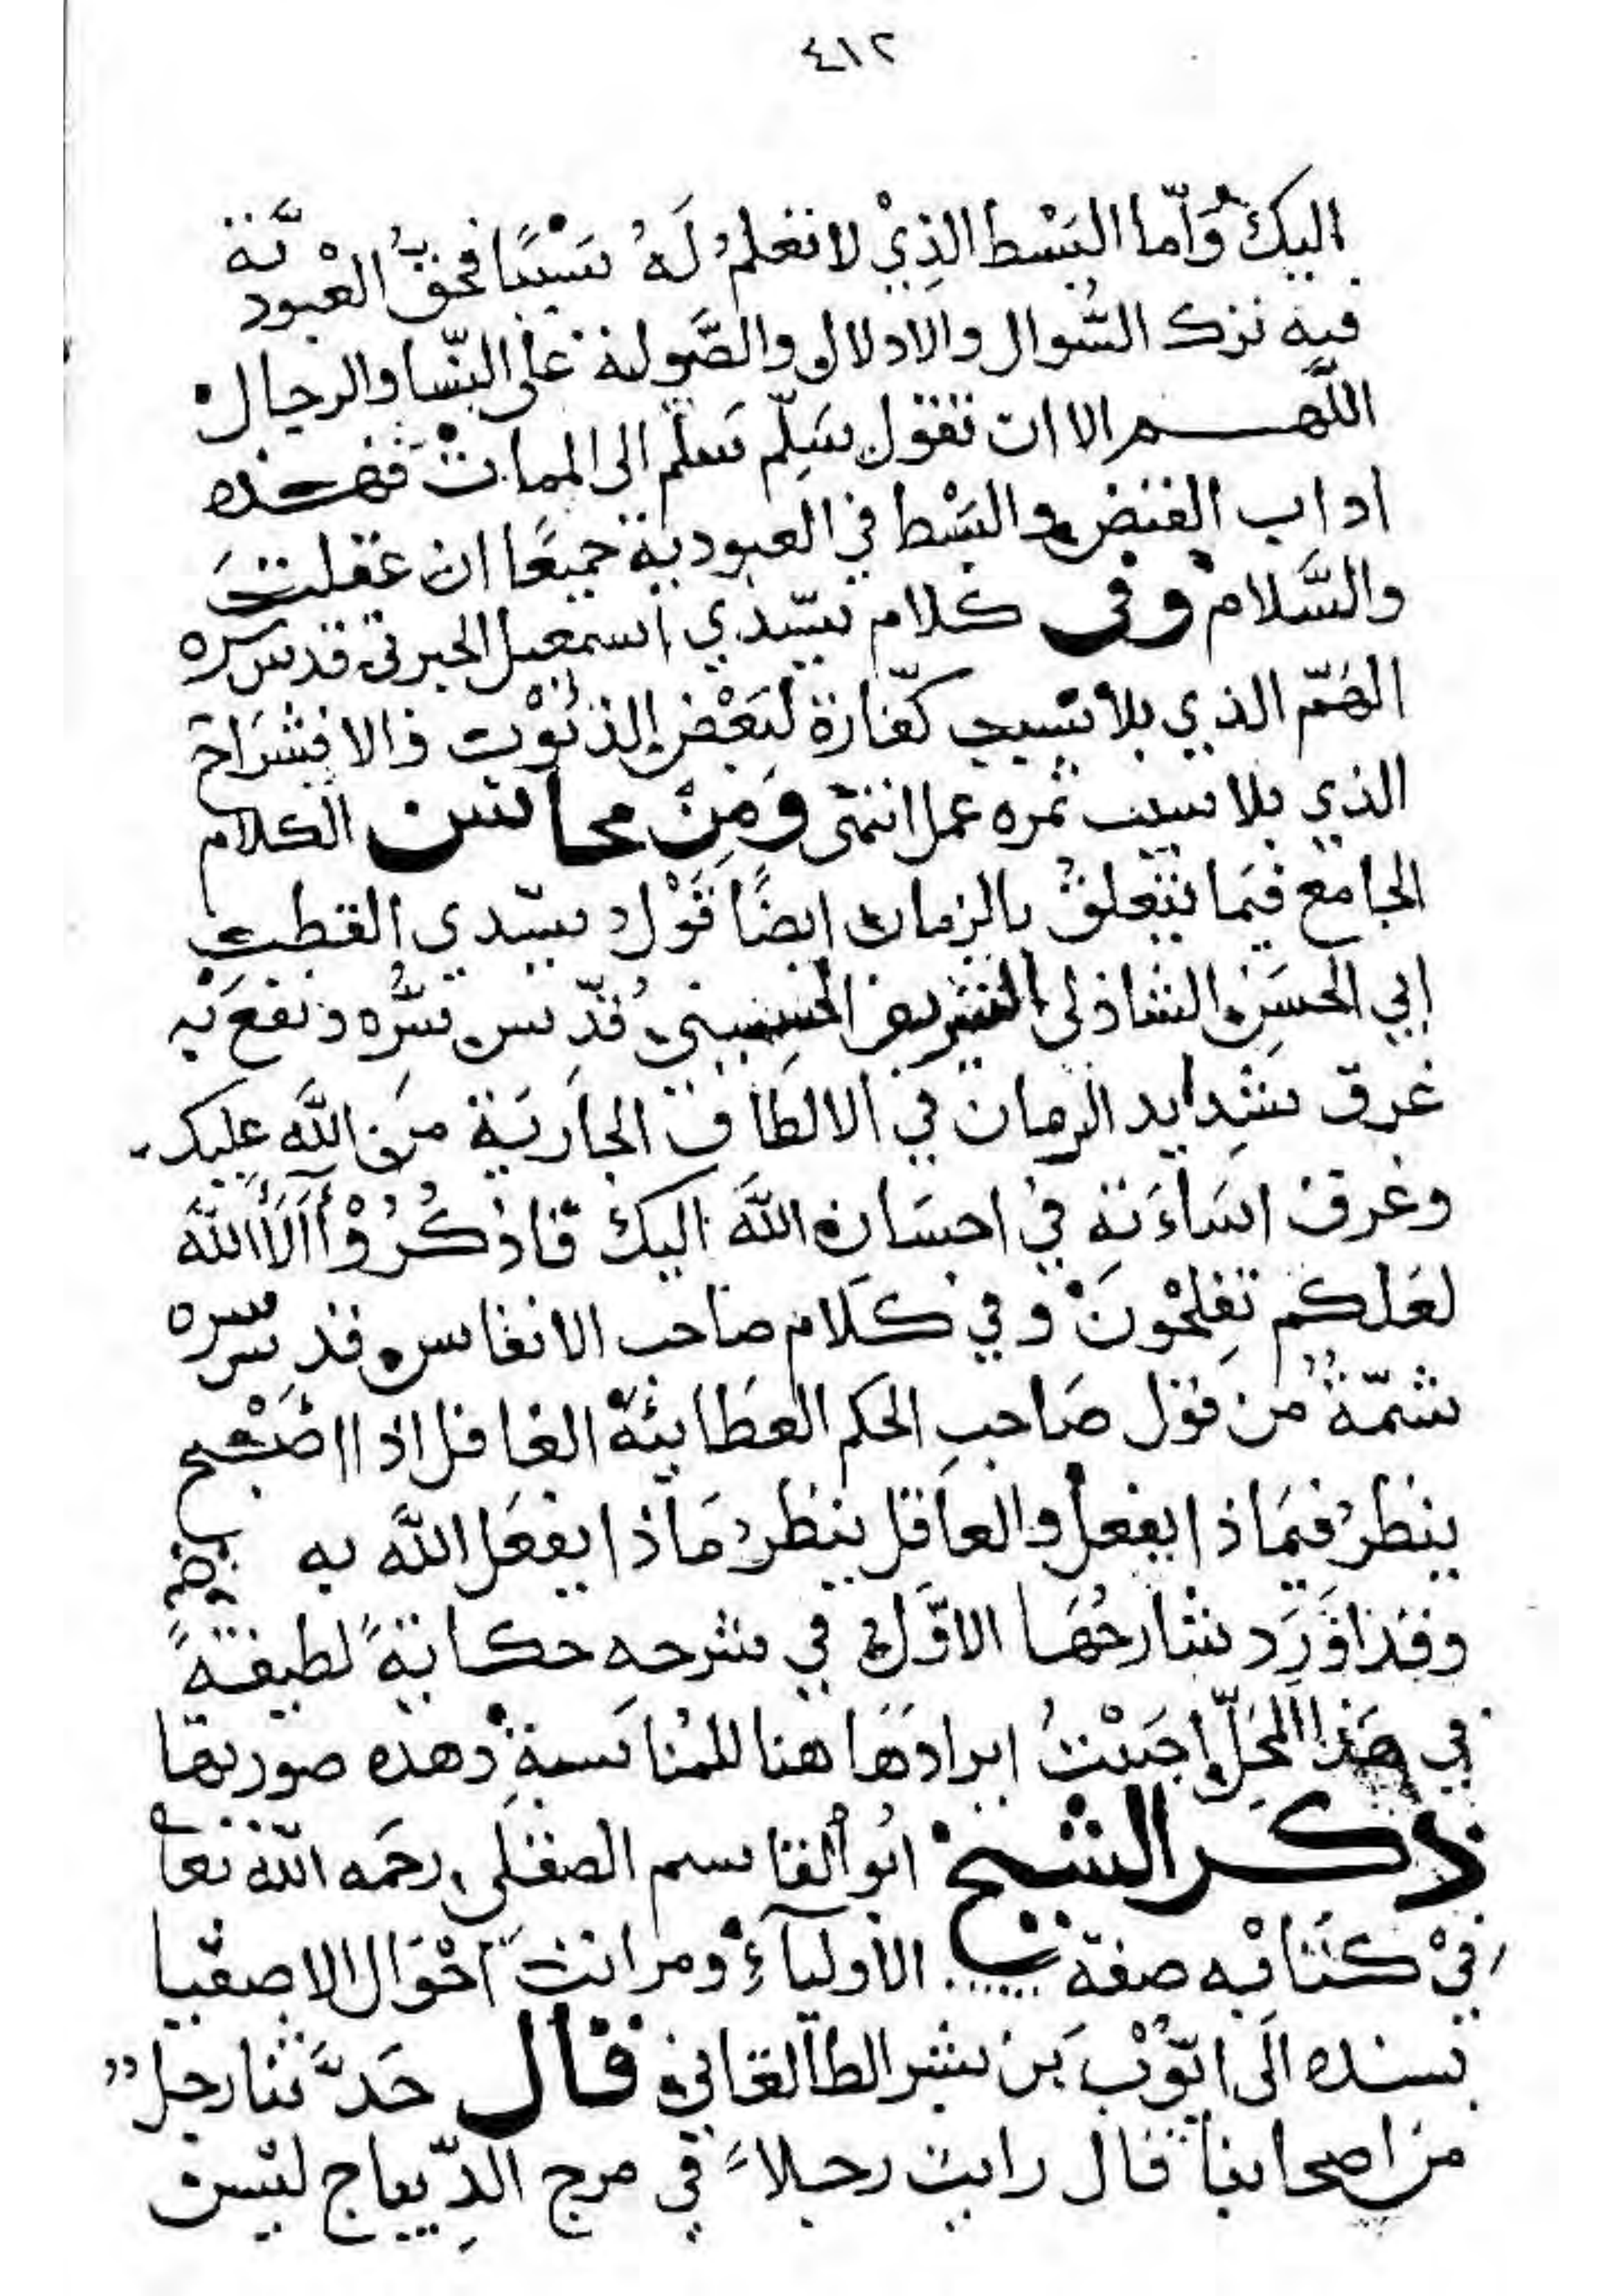 ٤١٢
اليك وَاَمّا البَسْط الذِيْ لا تعلمُ لَهُ سَبَبًا فحقُّ العُبوديَّة
فيه ترك السُّوال والادلال والصَّولة على النّسا والرجال
اللّهم الا ان تقول سَلِّم سَلّم الى الممات فهذه
اداب القبض والبَسْط في العبودية جميعًا ان عقلتَ
والسَّلام وفى كلام سيّدي اسمعيل الجبرتى قدس سره
الهَمّ الذي بلا سبب كفّارة لبَعْض الذنوْب والانشَراح
الذي بلا سبب ثمره عمل انتهى وَمِنْ محاسن الكلام
الجامع فيَما يتعلقُ بالزمان ايضًا قَوْل سيّدي القطب
ابي الحسَن الشاذلى الشريف الحسيني قُدّس سِرُّه ونفعَ به
غرق شِدايد الزمان في الالطاف الجاريَة من اللَّه عليك
وغرق اسَاءَته في احسَان اللَّه اليك فَاذْكُرُوْٓا اٰلَآءَ اللّٰهَ
لعَلكم تُفلِحُونَ وفي كلام صَاحب الانفاس قدس سره
شمّةٌ من قول صَاحبِ الحكم العطَايئة الغافل اذا اصْبَح
ينظرُ فيمَاذا يفعل والعاقل ينظرُ مَاذا يفعَل اللَّه به
وقد اَوْرَد شارحُهَا الاوّل في شرحه حكايةً لطيفةً
في هَذا المحَلّ اَحببْتُ ايرادَهَا هنا للمُنَاسبةِ وهذه صورتها
ذكر الشيخ ابُو القاسم الصقلى رحمَه اللّه تعا
في كتابه صفة الأوليآءِ ومراتب اَحْوَال الاصفيا
بسنده الى ايّوْب بن بشر الطالقاني قال حَدَّثنا رجل
من اصحابنا قال رايت رجلاً في مرج الدّيباج ليس